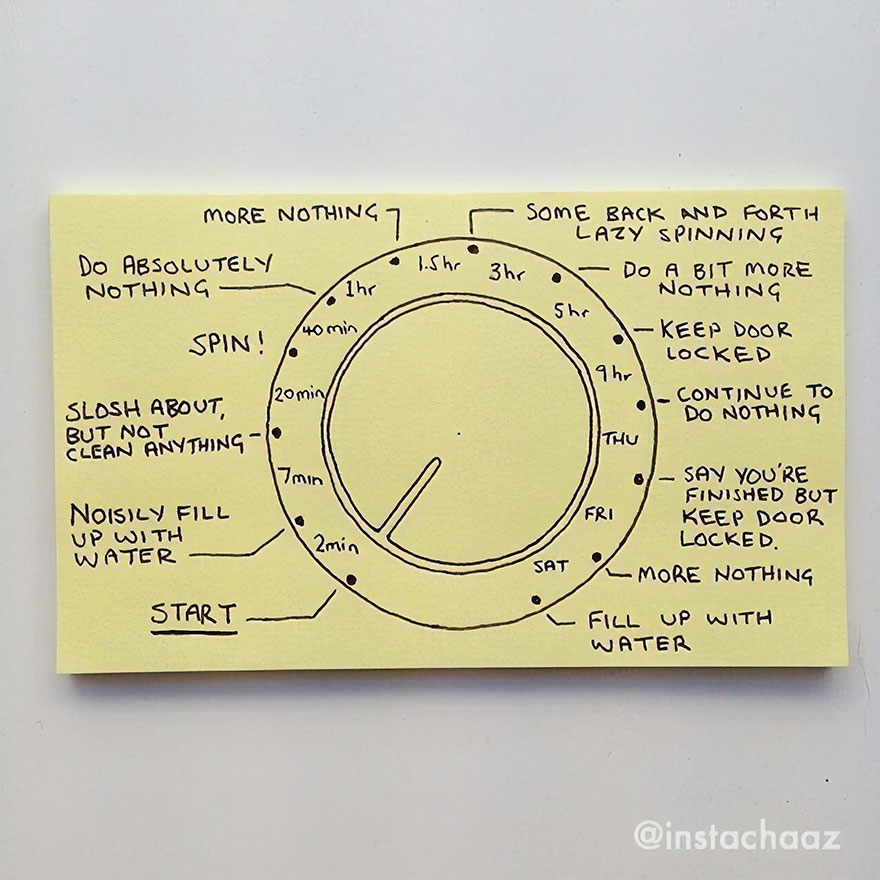 MORE NOTHING
SOME BACK AND FORTH
LAZY SPINNING
DO ABSOLUTELY
NOTHING
DO A BIT MORE
NOTHING
SPIN!
KEEP DOOR
LOCKED
SLOSH ABOUT,
BUT NOT
CLEAN ANYTHING
CONTINUE TO
DO NOTHING
NOISILY FILL
UP WITH
WATER
SAY YOU'RE
FINISHED BUT
KEEP DOOR
LOCKED.
START
MORE NOTHING
FILL UP WITH
WATER
2min
7min
20min
40min
1hr
1.5hr
3hr
5hr
9hr
THU
FRI
SAT
@instachaaz